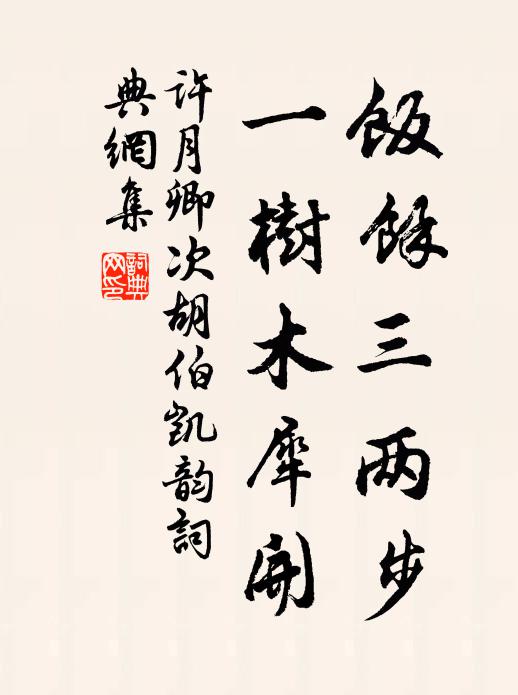 飯餘三两步
一樹木犀開
许月卿次胡伯凱韵詞
典網集
詞典
网印